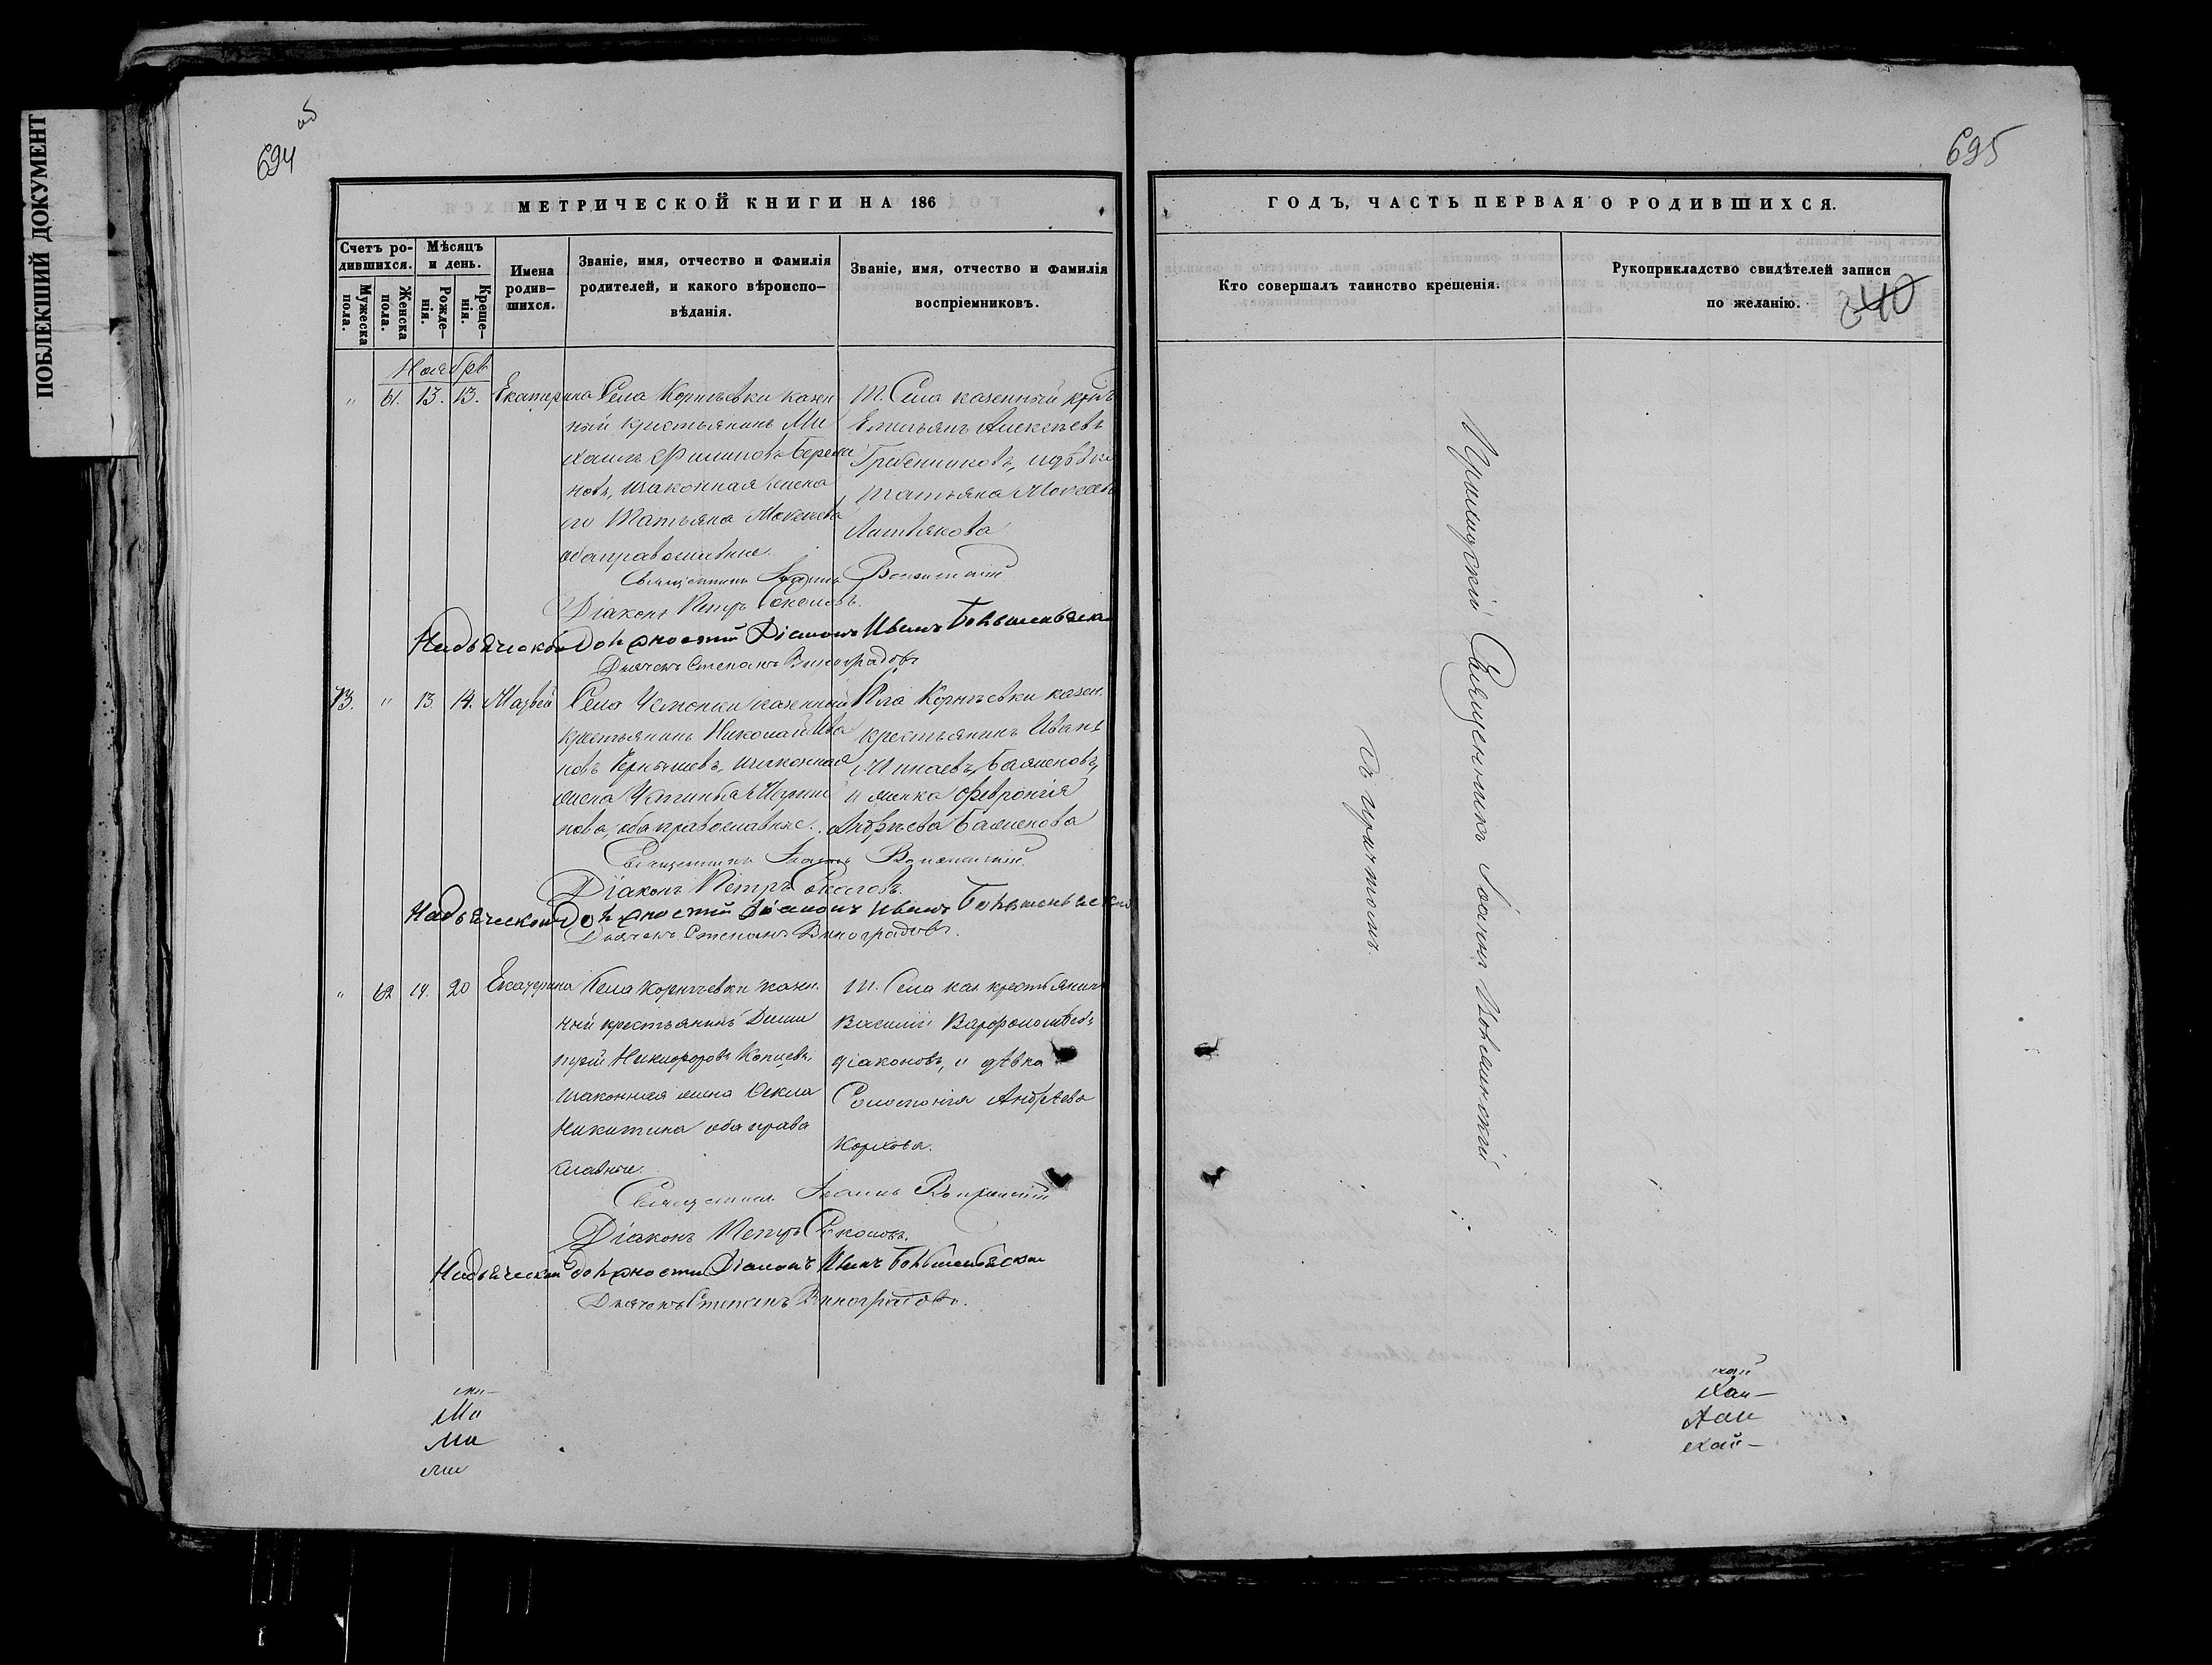 ПОБЛЕКШИЙ ДОКУМЕНТ
694 об
МЕТРИЧЕСКОЙ КНИГИ НА 186
Счетъ родившихся.
Мужеска пола.
Женска пола.
Мѣсяцъ и день.
Рожденія.
Крещенія.
Имена родившихся.
Званіе, имя, отчество и фамилія
родителей, и какого вѣроиспо-
вѣданія.
Званіе, имя, отчество и фамилія
воспріемниковъ.
Ноябрь
" 61. 13. 13. Екатерина
Села Корнѣевки казен
ный крестьянинъ Ми
хаилъ Филиповъ
новъ, и законная жена
его Татьяна Мокеева
оба православные.
т. Села казенный крест
Емельянъ Алексѣевъ
Гребенниковъ, и дѣвка
Татьяна Моисеев
Священникъ Іоаннъ
Діаконъ Петръ Соколовъ.
На дьяческой должности Діаконъ Иванъ
Дьячекъ Степанъ Виноградовъ
73. " 13. 14. Матвей
Села казенный
крестьянинъ Николай Ива
новъ Чернышевъ, и законная
жена
нова, оба православные.
Села Корнѣевки казен.
крестьянинъ Иванъ
Минаевъ Баженовъ,
и женка Февронія
Андреева Баженова
Священникъ Іоаннъ
Діаконъ Петръ Соколовъ.
На дьяческой должности Діаконъ Иванъ
Дьячекъ Степанъ Виноградовъ.
" 62 14. 20 Екатерина
Села Корнѣевки казен.
ный крестьянинъ Дими
трій Никифоровъ Копцевъ,
и законная жена Фекла
Никитина оба право
славные.
т. Села каз. крестьянинъ
Василій Варфоломѣевъ
Діаконовъ, и дѣвка
Соломонія Андреева
Корхова.
Священникъ Іоаннъ
Діаконъ Петръ Соколовъ.
На дьяческой должности Діаконъ Иванъ
Дьячекъ Степанъ Виноградовъ.
ми—
Ми
Ми
ми
695
ГОДЪ, ЧАСТЬ ПЕРВАЯ О РОДИВШИХСЯ.
Кто совершалъ таинство крещенія.
Рукоприкладство свидѣтелей записи
по желанію.
240
Приходскій Священникъ Іоаннъ
Съ причтомъ.
хай
хай—
хай
хай—